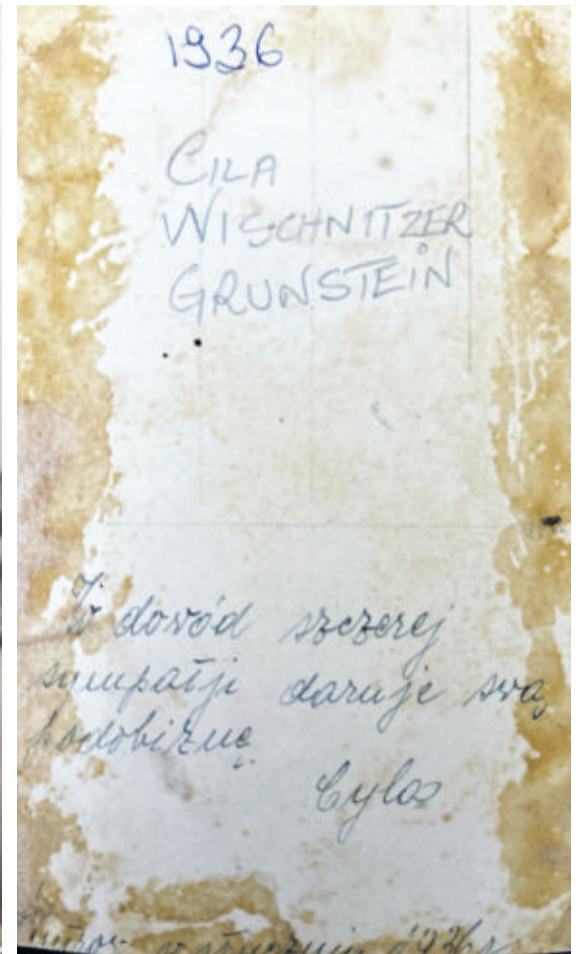 1936
CILA
WISCHNITZER
GRUNSTEIN
W dowód szczerej
sympatji daruje swą
podobiznę
Cyla
w styczniu 1936 r